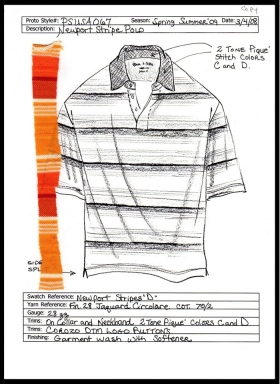 Copy
Proto Style#: PSUSA067 Season: Spring Summer '09 Date: 3/4/08
Description: Newport Stripe Polo
2 Tone Pique'
Stitch Colors
C and D.
SIDE
SPL
Swatch Reference: Newport Stripes "D"
Yarn Reference: Fin. 28 Jaquard Circolare COT. 70/2
Gauge: 28 gg
Trims: On Collar and Neckband 2 Tone Pique' Colors C and D
Trims: Corozo DTM Logo Buttons
Finishing: Garment wash with Softener